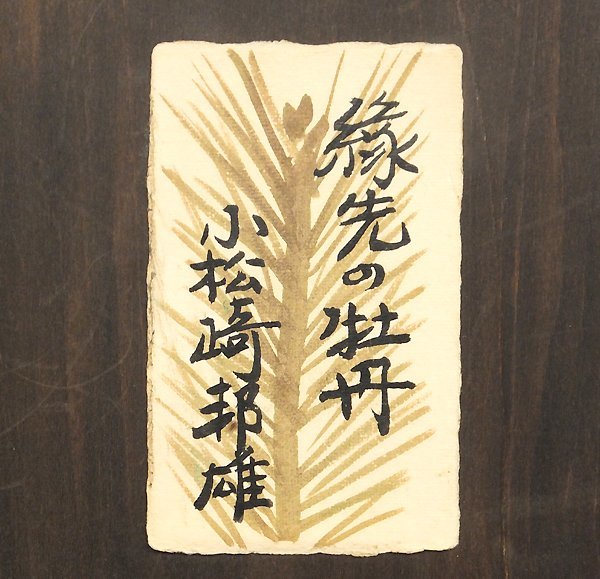 縁先の牡丹
小松崎邦雄